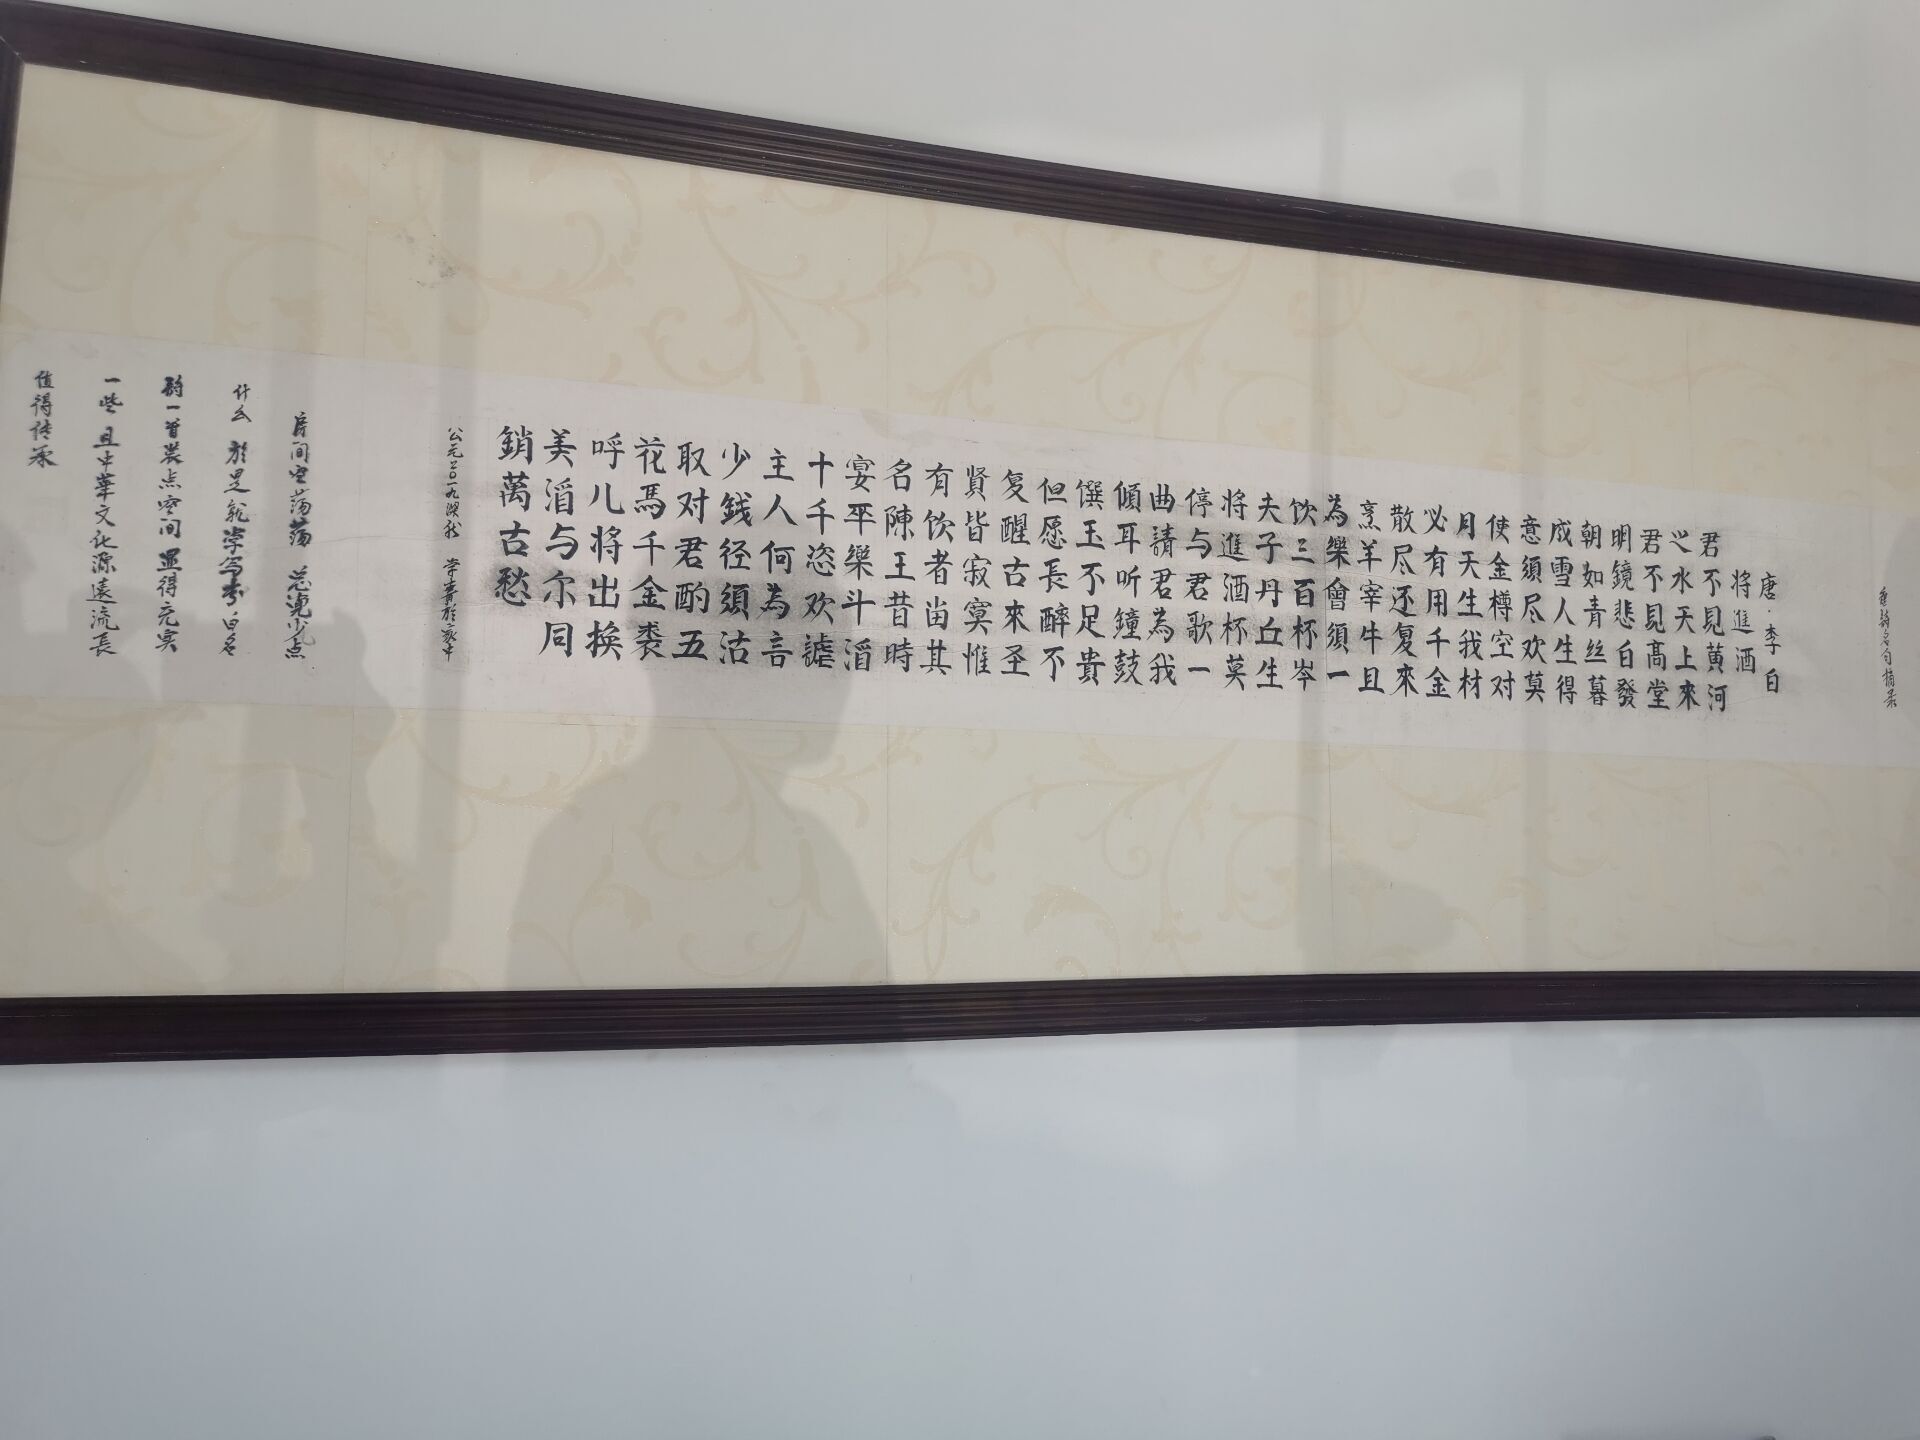 唐·李白
将進酒
君不見黄河
之水天上來
君不見髙堂
明鏡悲白發
朝如青丝暮
成雪人生得
意須尽欢莫
使金樽空对
月天生我材
必有用千金
散尽还复來
烹羊宰牛且
為樂會須一
饮三百杯岑
夫子丹丘生
将進酒杯莫
停与君歌一
曲請君為我
傾耳听鐘鼓
馔玉不足貴
但愿長醉不
复醒古來圣
賢皆寂寞惟
有饮者留其
名陳王昔時
宴平樂斗酒
十千恣欢謔
主人何為言
少錢径須沽
取对君酌五
花馬千金裘
呼儿将出换
美酒与尔同
銷萬古愁
公元二〇一九 於家中
房间空荡荡 总觉少点
什么 於是就 李白名
一首装点空间 显得充实
一些 且中華文化源遠流長
值得传承